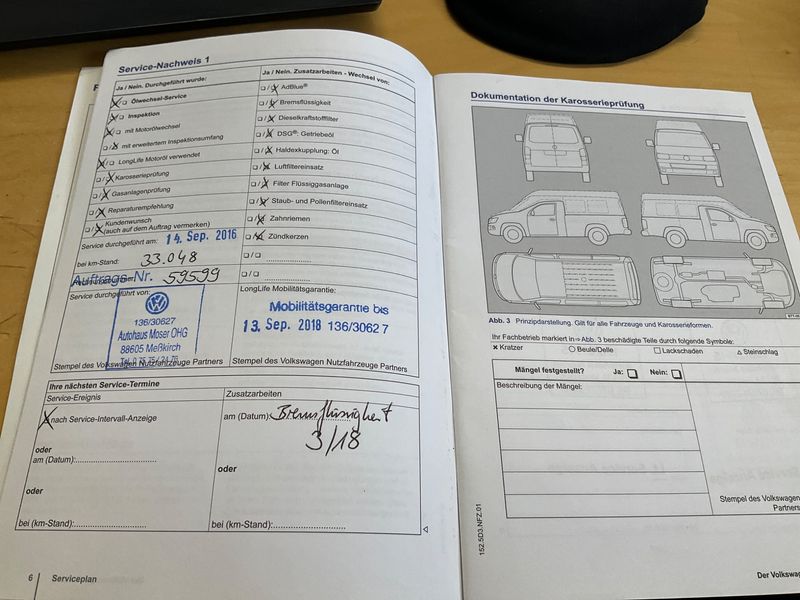 Service-Nachweis 1
Ja / Nein. Durchgeführt wurde:
Ölwechsel-Service
Inspektion
mit Motorölwechsel
mit erweitertem Inspektionsumfang
LongLife Motoröl verwendet
Karosserieprüfung
Gasanlagenprüfung
Reparaturempfehlung
Kundenwunsch
(auch auf dem Auftrag vermerken)
Service durchgeführt am: 14. Sep. 2016
bei km-Stand: 33.048
Auftrags-Nr. 59599
Service durchgeführt von:
136/30627
Autohaus Moser OHG
88605 Meßkirch
Stempel des Volkswagen Nutzfahrzeuge Partners
Ja / Nein. Zusatzarbeiten - Wechsel von:
AdBlue®
Bremsflüssigkeit
Dieselkraftstofffilter
DSG®: Getriebeöl
Haldexkupplung: Öl
Luftfiltereinsatz
Filter Flüssiggasanlage
Staub- und Pollenfiltereinsatz
Zahnriemen
Zündkerzen
LongLife Mobilitätsgarantie:
Mobilitätsgarantie bis
13. Sep. 2018 136/30627
Stempel des Volkswagen Nutzfahrzeuge Partners
Ihre nächsten Service-Termine
Service-Ereignis
nach Service-Intervall-Anzeige
oder
am (Datum):
oder
bei (km-Stand):
Zusatzarbeiten
am (Datum): Bremsflüssigkeit
3/18
oder
bei (km-Stand):
6 Serviceplan
Dokumentation der Karosserieprüfung
Abb. 3 Prinzipdarstellung. Gilt für alle Fahrzeuge und Karosserieformen.
Ihr Fachbetrieb markiert in ⇒ Abb. 3 beschädigte Teile durch folgende Symbole:
× Kratzer ○ Beule/Delle □ Lackschaden △ Steinschlag
Mängel festgestellt? Ja: □ Nein: □
Beschreibung der Mängel:
Stempel des Volkswagen
Partners
152.5D3.NFZ.01
Der Volkswa